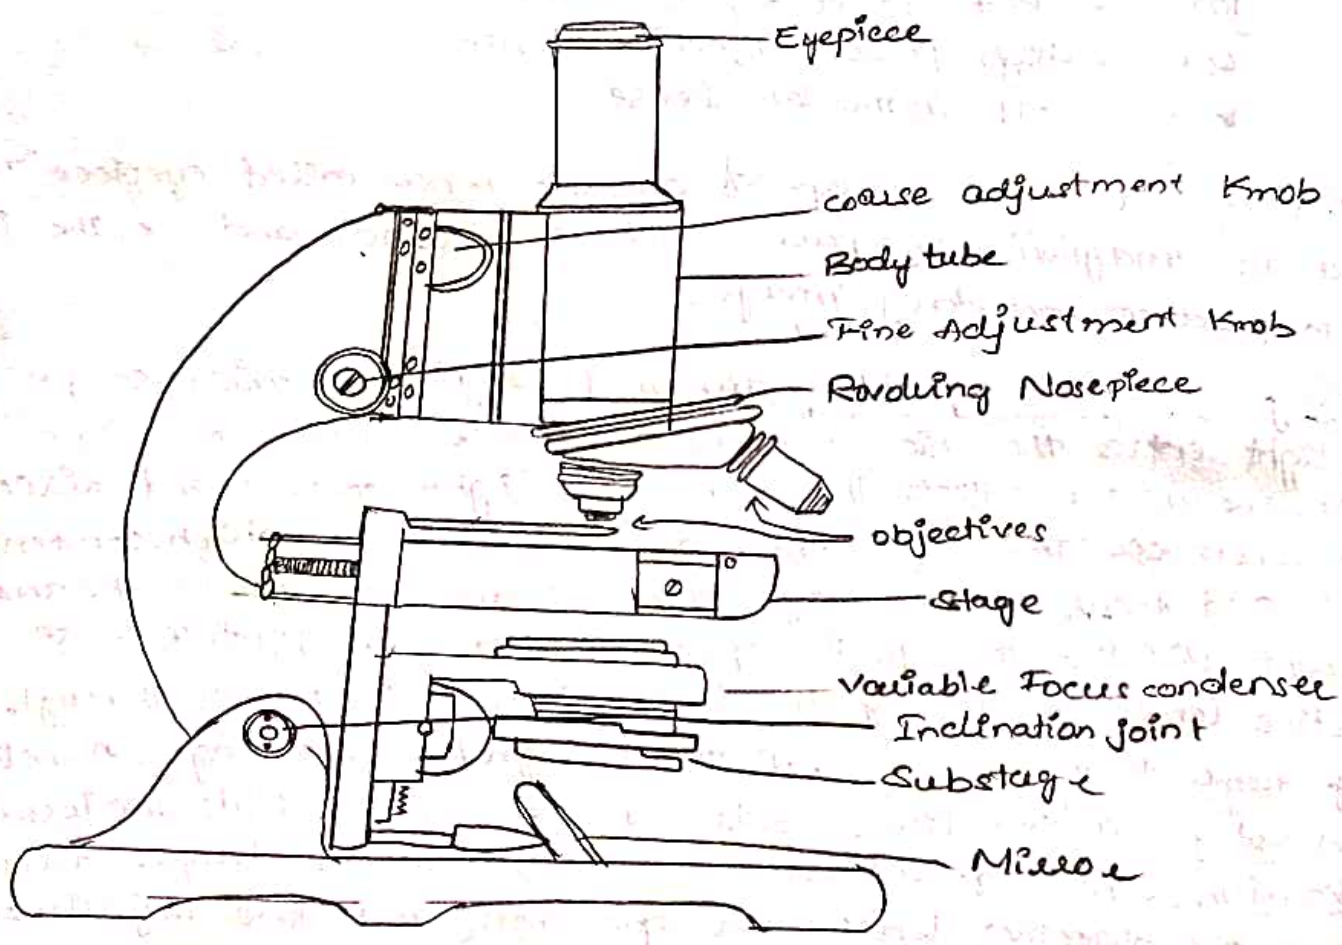 Eyepiece
coarse adjustment Knob
Body tube
Fine Adjustment Knob
Revolving Nosepiece
objectives
Stage
Variable Focus condenser
Inclination joint
Substage
Mirror